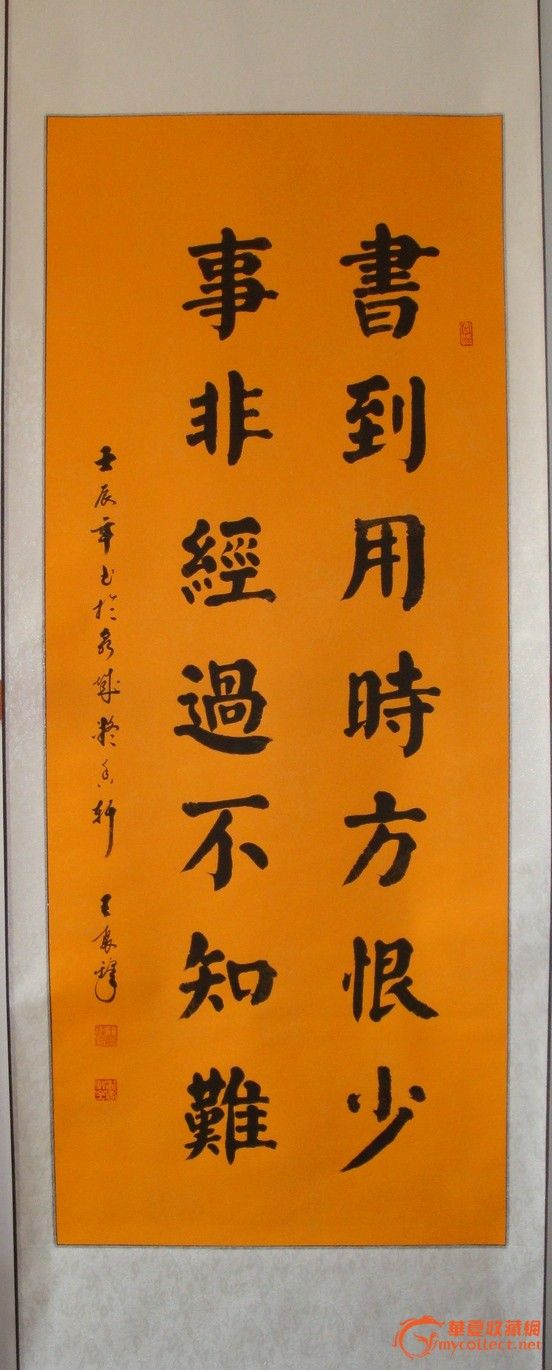 書到用時方恨少
事非經過不知難
壬辰年書於泉城
軒
華夏收藏網
mycollect.net